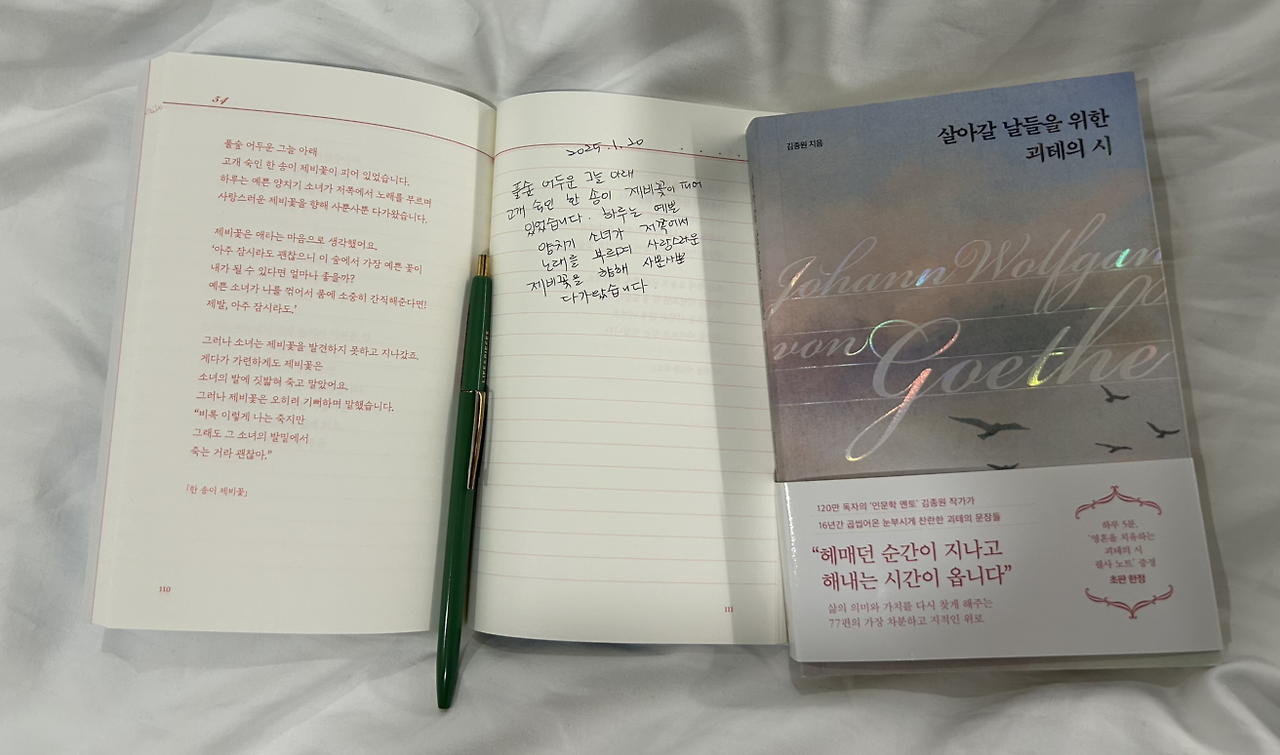 54
풀숲 어두운 그늘 아래
고개 숙인 한 송이 제비꽃이 피어 있었습니다.
하루는 예쁜 양치기 소녀가 저쪽에서 노래를 부르며
사랑스러운 제비꽃을 향해 사뿐사뿐 다가왔습니다.
제비꽃은 애타는 마음으로 생각했어요.
‘아주 잠시라도 괜찮으니 이 숲에서 가장 예쁜 꽃이
내가 될 수 있다면 얼마나 좋을까?
예쁜 소녀가 나를 꺾어서 품에 소중히 간직해준다면!
제발, 아주 잠시라도.’
그러나 소녀는 제비꽃을 발견하지 못하고 지나갔죠.
게다가 가련하게도 제비꽃은
소녀의 발에 짓밟혀 죽고 말았어요.
그러나 제비꽃은 오히려 기뻐하며 말했습니다.
“비록 이렇게 나는 죽지만
그래도 그 소녀의 발밑에서
죽는 거라 괜찮아.”
「한 송이 제비꽃」
110
2025.1.20
풀숲 어두운 그늘 아래
고개 숙인 한 송이 제비꽃이 피어
있었습니다. 하루는 예쁜
양치기 소녀가 저쪽에서
노래를 부르며 사랑스러운
제비꽃을 향해 사뿐사뿐
다가왔습니다.
111
김종원 지음
살아갈 날들을 위한
괴테의 시
Johann Wolfgan
von Goethe
120만 독자의 ‘인문학 멘토’ 김종원 작가가
16년간 곱씹어온 눈부시게 찬란한 괴테의 문장들
“헤매던 순간이 지나고
해내는 시간이 옵니다”
삶의 의미와 가치를 다시 찾게 해주는
77편의 가장 차분하고 지적인 위로
하루 5분,
‘영혼을 치유하는
괴테의 시
필사 노트’ 증정
초판 한정